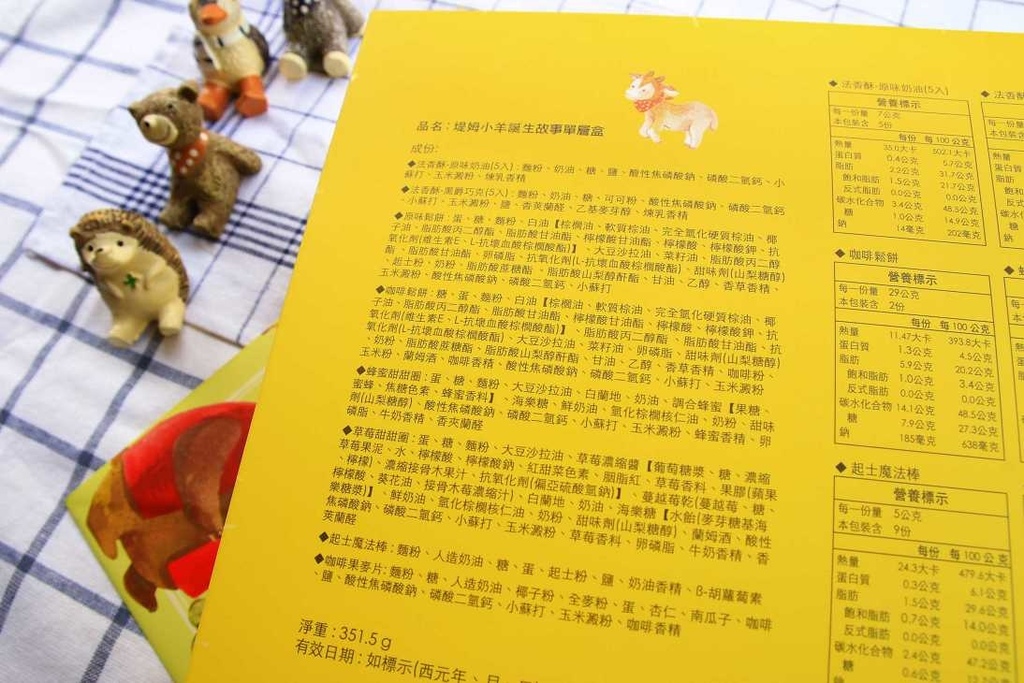 品名：堤姆小羊誕生故事單層盒
成份:
◆法香酥-原味奶油(5入)：麵粉、奶油、糖、鹽、酸性焦磷酸鈉、磷酸二氫鈣、小
蘇打、玉米澱粉、煉乳香精
◆法香酥-黑爵巧克(5入)：麵粉、奶油、糖、可可粉、酸性焦磷酸鈉、磷酸二氫鈣
、小蘇打、玉米澱粉、鹽、香莢蘭醛、乙基麥芽醇、煉乳香精
◆原味鬆餅：蛋、糖、麵粉、白油【棕櫚油、軟質棕油、完全氫化硬質棕油、椰
子油、脂肪酸丙二醇酯、脂肪酸甘油酯、檸檬酸甘油酯、檸檬酸、檸檬酸鉀、抗
氧化劑(維生素E、L-抗壞血酸棕櫚酸酯)】、大豆沙拉油、菜籽油、脂肪酸丙二醇
酯、脂肪酸甘油酯、卵磷脂、抗氧化劑(L-抗壞血酸棕櫚酸酯)、甜味劑(山梨糖醇)
、起士粉、奶粉、脂肪酸蔗糖酯、脂肪酸山梨醇酐酯、甘油、乙醇、香草香精、
玉米澱粉、酸性焦磷酸鈉、磷酸二氫鈣、小蘇打
◆咖啡鬆餅：糖、蛋、麵粉、白油【棕櫚油、軟質棕油、完全氫化硬質棕油、椰
子油、脂肪酸丙二醇酯、脂肪酸甘油酯、檸檬酸甘油酯、檸檬酸、檸檬酸鉀、抗
氧化劑(維生素E、L-抗壞血酸棕櫚酸酯)】、脂肪酸丙二醇酯、脂肪酸甘油酯、抗
氧化劑(L-抗壞血酸棕櫚酸酯)、大豆沙拉油、菜籽油、卵磷脂、甜味劑(山梨糖醇)
、奶粉、脂肪酸蔗糖酯、脂肪酸山梨醇酐酯、甘油、乙醇、香草香精、咖啡粉、
玉米粉、蘭姆酒、咖啡香精、酸性焦磷酸鈉、磷酸二氫鈣、小蘇打、玉米澱粉
◆蜂蜜甜甜圈：蛋、糖、麵粉、大豆沙拉油、白蘭地、奶油、調合蜂蜜【果糖、
蜂蜜、焦糖色素、蜂蜜香料】、海樂糖、鮮奶油、氫化棕櫚核仁油、奶粉、甜味
劑(山梨糖醇)、酸性焦磷酸鈉、磷酸二氫鈣、小蘇打、玉米澱粉、蜂蜜香精、卵
磷脂、牛奶香精、香夾蘭醛
◆草莓甜甜圈：蛋、糖、麵粉、大豆沙拉油、草莓濃縮醬【葡萄糖漿、糖、濃縮
草莓果泥、水、檸檬酸、檸檬酸鈉、紅甜菜色素、胭脂紅、草莓香料、果膠(蘋果
、檸檬)、濃縮接骨木果汁、抗氧化劑(偏亞硫酸氫鈉)】、蔓越莓乾(蔓越莓、糖、
檸檬酸、葵花油、接骨木莓濃縮汁)、白蘭地、奶油、海樂糖【水飴(麥芽糖基海
樂糖漿)】、鮮奶油、氫化棕櫚核仁油、奶粉、甜味劑(山梨糖醇)、蘭姆酒、酸性
焦磷酸鈉、磷酸二氫鈣、小蘇打、玉米澱粉、草莓香料、卵磷脂、牛奶香精、香
莢蘭醛
◆起士魔法棒：麵粉、人造奶油、糖、蛋、起士粉、鹽、奶油香精、β-胡蘿蔔素
◆咖啡果麥片：麵粉、糖、人造奶油、椰子粉、全麥粉、蛋、杏仁、南瓜子、咖啡
、鹽、酸性焦磷酸鈉、磷酸二氫鈣、小蘇打、玉米澱粉、咖啡香精
淨重：351.5 g
有效日期：如標示(西元年、月、
◆ 法香酥-原味奶油(5入)
營養標示
每一份量 7公克
本包裝含 5份
每份 每 100 公克
熱量 35.0大卡 502.1大卡
蛋白質 0.4公克 5.7公克
脂肪 2.2公克 31.7公克
飽和脂肪 1.5公克 21.7公克
反式脂肪 0.0公克 0.0公克
碳水化合物 3.4公克 48.5公克
糖 1.0公克 14.9公克
鈉 14毫克 202毫克
◆ 咖啡鬆餅
營養標示
每一份量 29公克
本包裝含 2份
每份 每 100 公克
熱量 11.47大卡 393.8大卡
蛋白質 1.3公克 4.5公克
脂肪 5.9公克 20.2公克
飽和脂肪 1.0公克 3.4公克
反式脂肪 0.0公克 0.0公克
碳水化合物 14.1公克 48.5公克
糖 7.9公克 27.3公克
鈉 185毫克 638毫克
◆ 起士魔法棒
營養標示
每一份量 5公克
本包裝含 9份
每份 每 100 公克
熱量 24.3大卡 479.6大卡
蛋白質 0.3公克 6.1公克
脂肪 1.5公克 29.6公克
飽和脂肪 0.7公克 14.0公克
反式脂肪 0.0公克 0.0公克
碳水化合物 2.4公克 47.2公克
糖 0.6公克
◆ 法香
每一份量
本包裝含